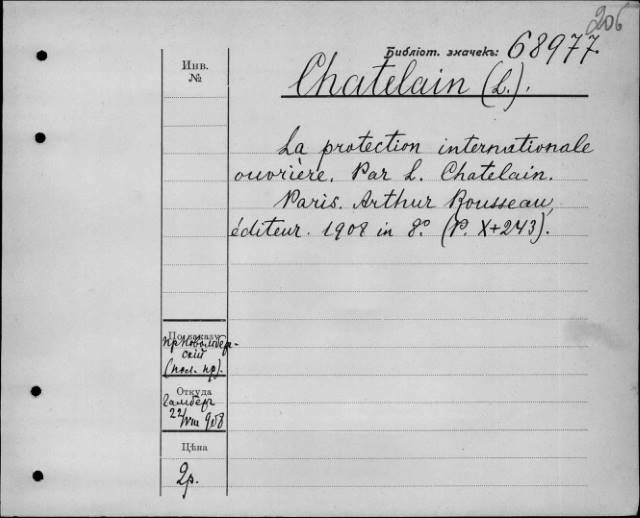 206
Библіот. значекъ: 68977.
Инв.
№
Chatelain (L.).
La protection internationale
ouvrière. Par L. Chatelain.
Paris. Arthur Rousseau,
éditeur. 1908 in 8.º (P. X+243).
По заказу
скій
Откуда
22/VIII 908
Цѣна
2р.